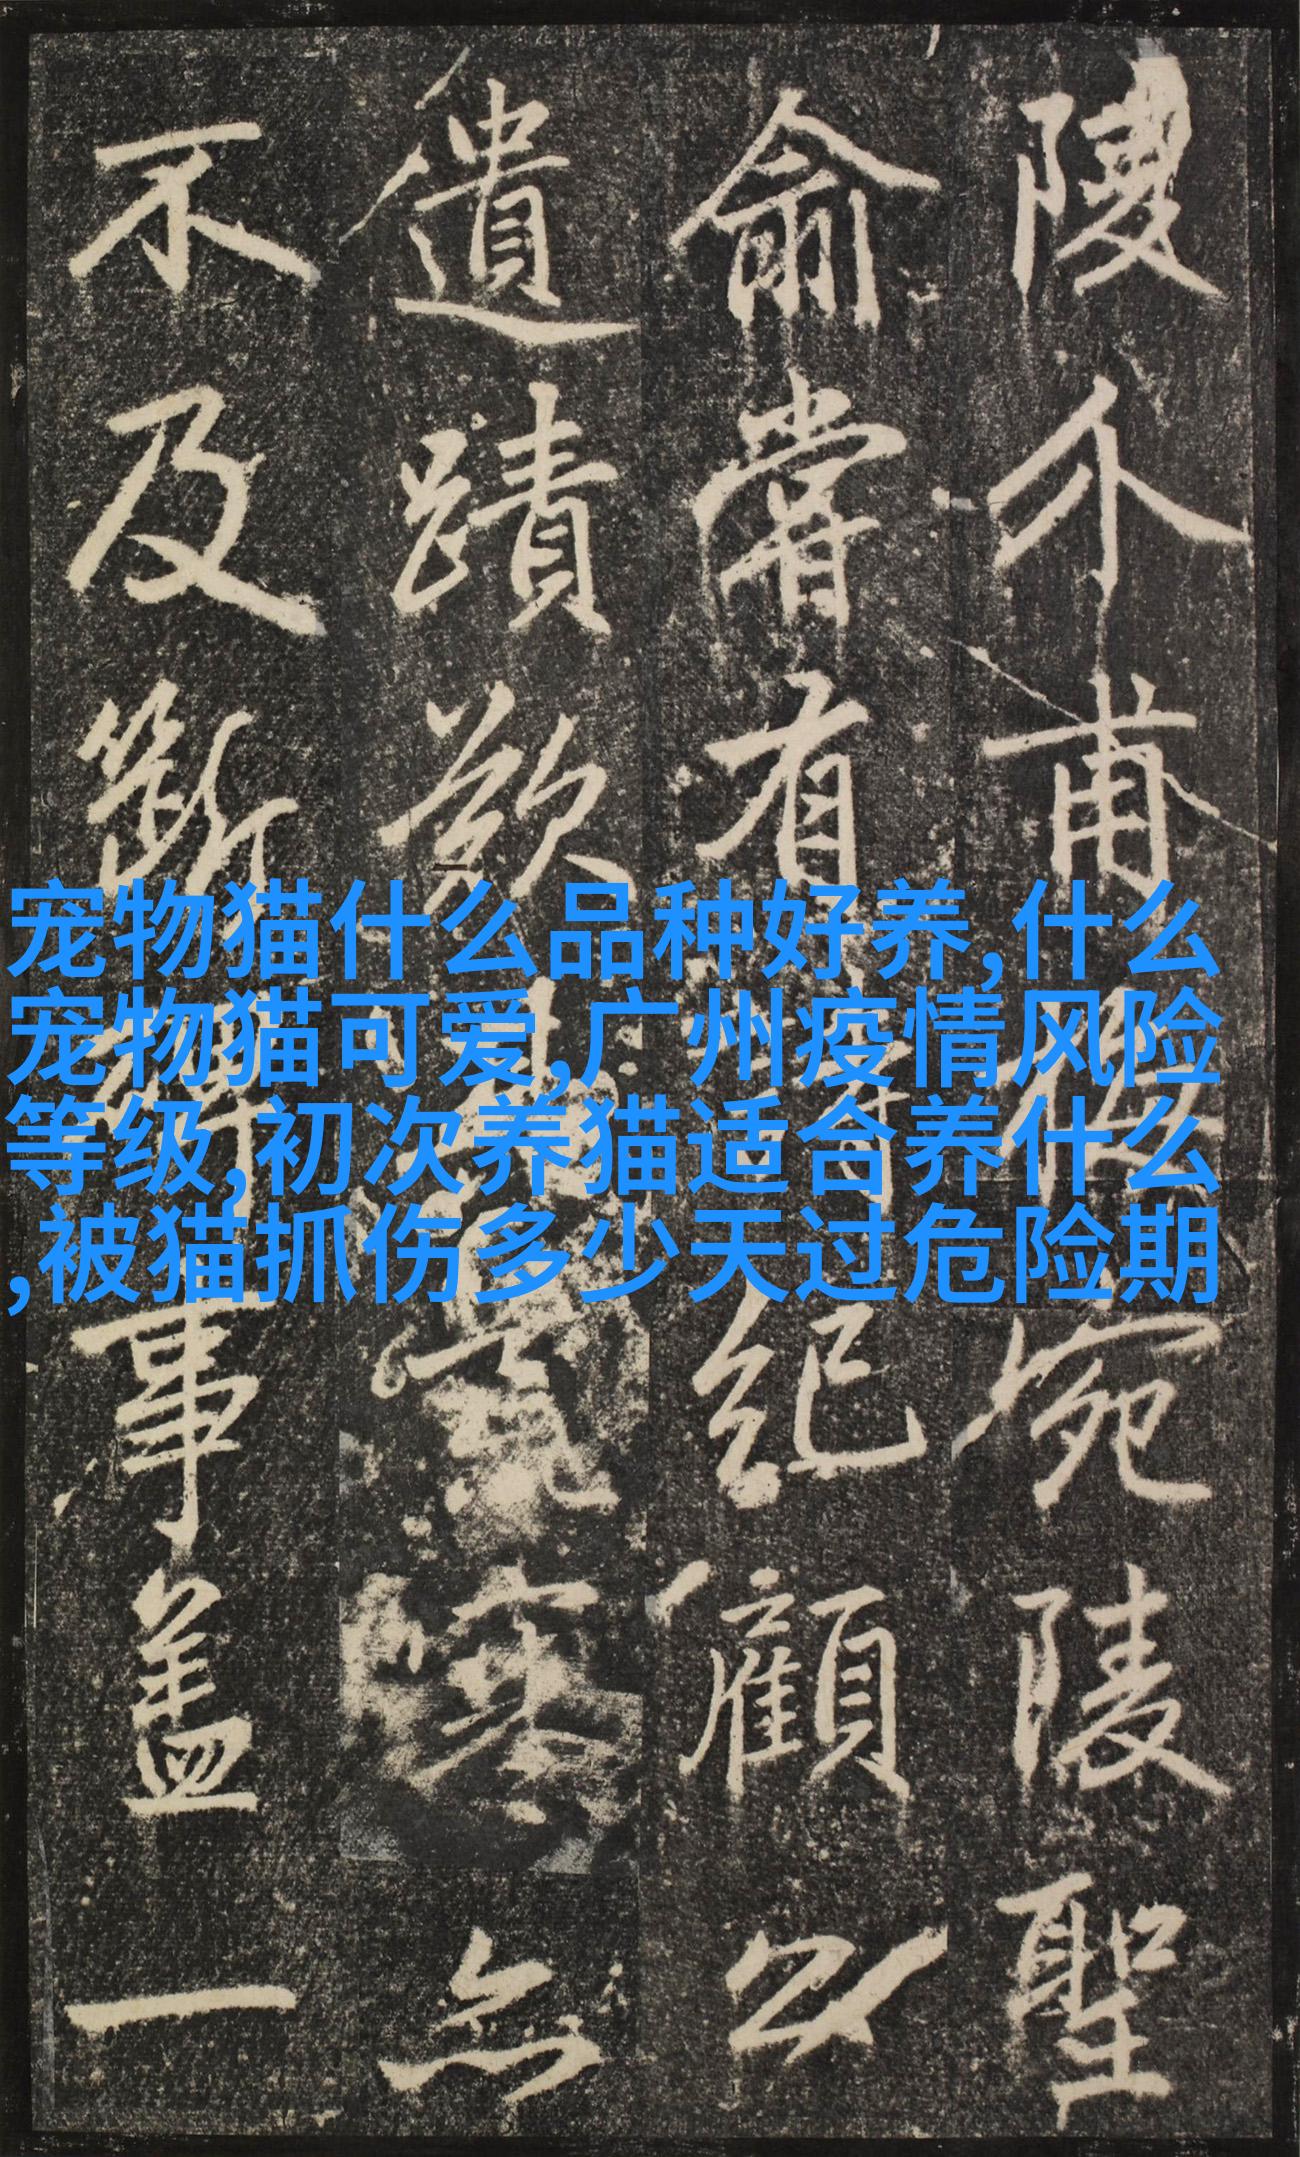 陵介甫
宛陵聖
俞嘗有
紀顧以
遺蹟欲
寒無
不及斷
事蓋一
宠物猫什么品种好养,什么
宠物猫可爱,广州疫情风险
等级,初次养猫适合养什么
,被猫抓伤多少天过危险期